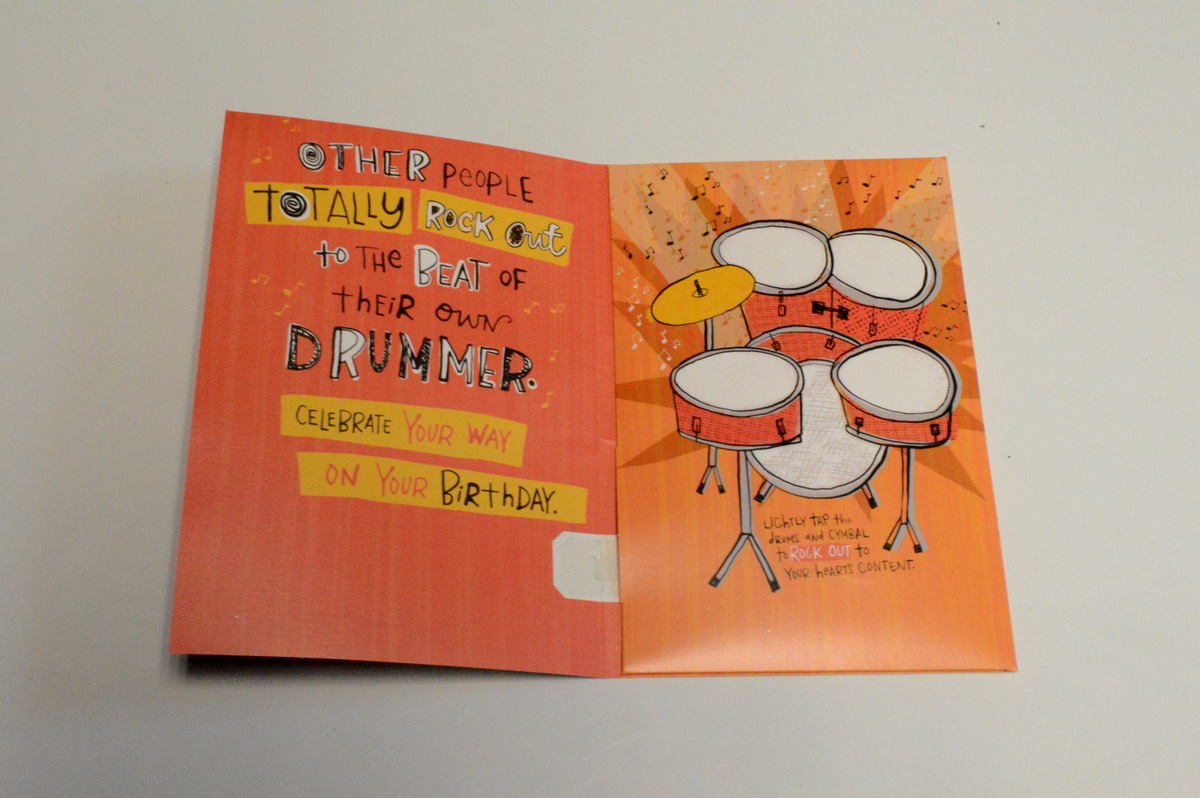 OTHER PEOPLE
TOTALLY ROCK OUT
to THE BEAT OF
THEIR OWN
DRUMMER.
CELEBRATE YOUR WAY
ON YOUR BIRTHDAY.
LIGHTLY TAP the
DRUMS and CYMBAL
to ROCK OUT to
YOUR HEART'S CONTENT.